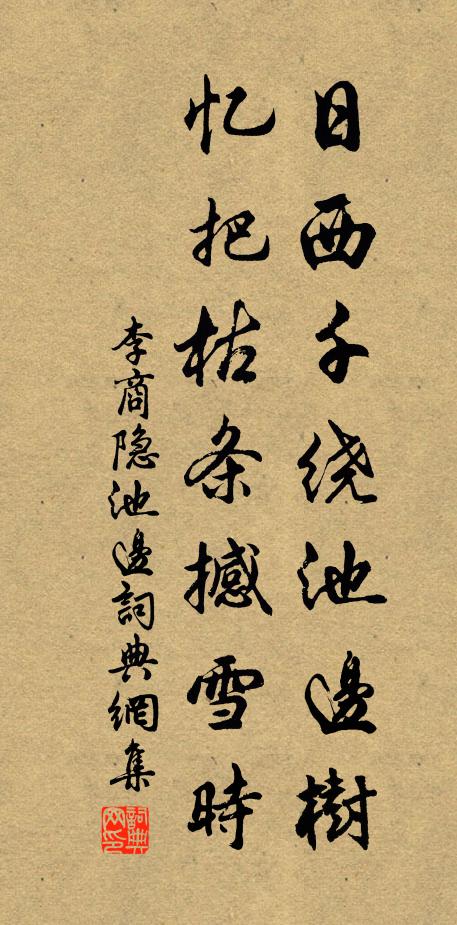 日西千绕池邊樹
忆把枯条撼雪時
李商隐池邊詞典網集